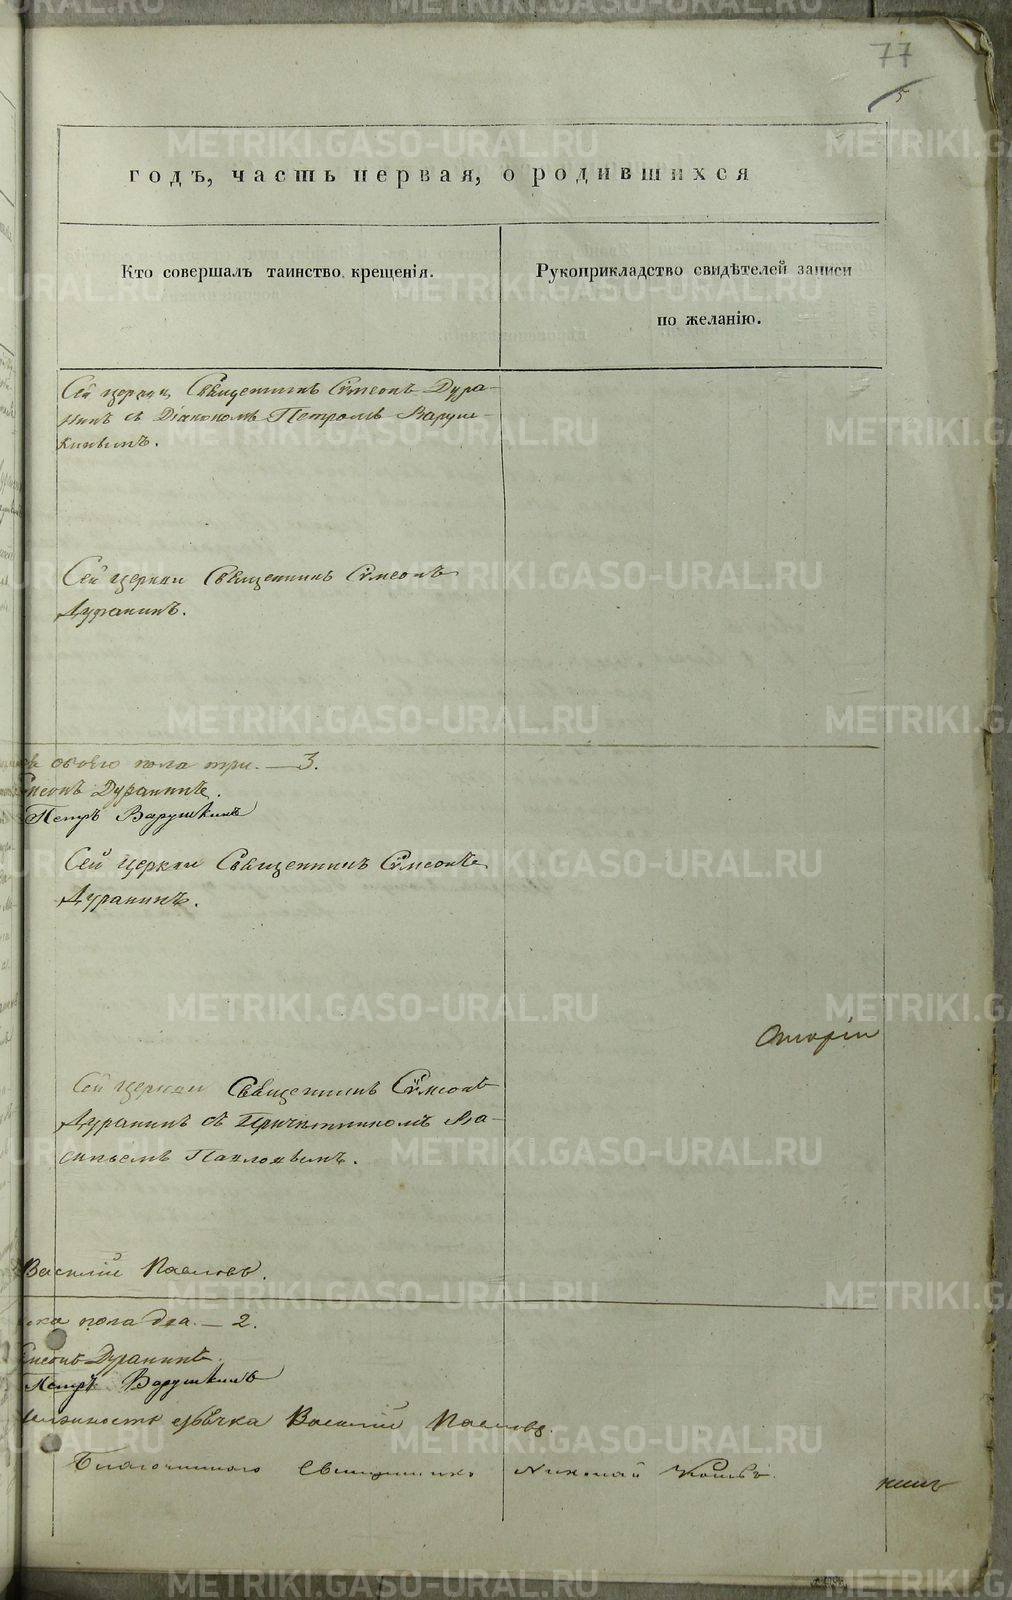 77
5
METRIKI.GASO-URAL.RU
годъ, часть первая, о родившихся
Кто совершалъ таинство крещенія.
Рукоприкладство свидѣтелей записи
по желанію.
Сей церкви Священникъ Сѵмеонъ Дура-
нинъ съ Діакономъ Петромъ Варуш-
кинымъ.
Сей церкви Священникъ Сѵмеонъ
Дуранинъ.
обоего пола три. — 3.
Дуранинъ.
Петръ Варушкинъ
Сей церкви Священникъ Сѵмеонъ
Дуранинъ.
Сей церкви Священникъ Сѵмеонъ
Дуранинъ съ Причетникомъ Ва-
сильемъ Павловымъ.
Василій Павловъ.
пола два. — 2.
Дуранинъ.
Петръ Варушкинъ
Василій Павловъ.
Священникъ Николай